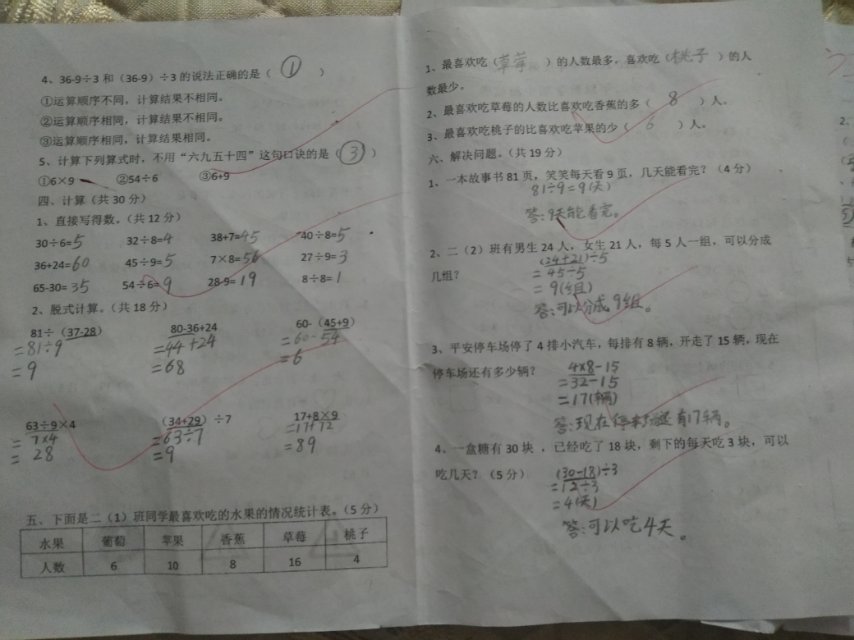 4、36-9÷3 和（36-9）÷3 的说法正确的是（ ① ）
①运算顺序不同，计算结果不相同。
②运算顺序相同，计算结果不相同。
③运算顺序相同，计算结果相同。
5、计算下列算式时，不用“六九五十四”这句口诀的是（ ③ ）
①6×9 ②54÷6 ③6+9
四、计算（共 30 分）
1、直接写得数。（共 12 分）
30÷6=5 32÷8=4 38+7=45 40÷8=5
36+24=60 45÷9=5 7×8=56 27÷9=3
65-30=35 54÷6=9 28-9=19 8÷8=1
2、脱式计算。（共 18 分）
81÷（37-28） 80-36+24 60-（45+9）
=81÷9 =44+24 =60-54
=9 =68 =6
63÷9×4 （34+29）÷7 17+8×9
=7×4 =63÷7 =17+72
=28 =9 =89
五、下面是二（1）班同学最喜欢吃的水果的情况统计表。（5 分）
水果 葡萄 苹果 香蕉 草莓 桃子
人数 6 10 8 16 4
1、最喜欢吃（草莓）的人数最多，喜欢吃（桃子）的人
数最少。
2、最喜欢吃草莓的人数比喜欢吃香蕉的多（ 8 ）人。
3、最喜欢吃桃子的比喜欢吃苹果的少（ 6 ）人。
六、解决问题。（共 19 分）
1、一本故事书 81 页，笑笑每天看 9 页，几天能看完？（4 分）
81÷9=9(天)
答:9天能看完。
2、二（2）班有男生 24 人，女生 21 人，每 5 人一组，可以分成
几组？ (24+21)÷5
=45÷5
=9(组)
答:可以分成9组。
3、平安停车场停了 4 排小汽车，每排有 8 辆，开走了 15 辆，现在
停车场还有多少辆？ 4×8-15
=32-15
=17(辆)
答:现在停车场还有17辆。
4、一盒糖有 30 块，已经吃了 18 块，剩下的每天吃 3 块，可以
吃几天？（5 分） (30-18)÷3
=12÷3
=4(天)
答:可以吃4天。